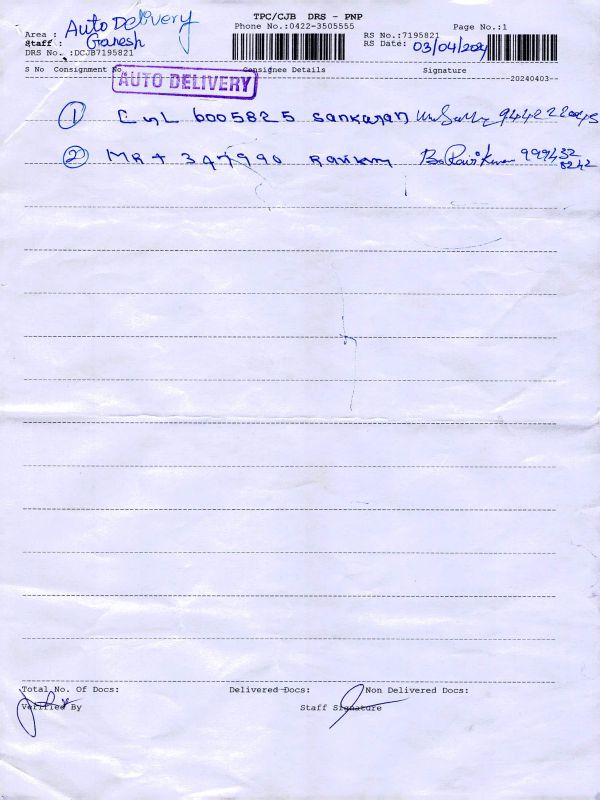 TPC/CJB DRS - PNP
Phone No.:0422-3505555 Page No.:1
Area : Auto Delivery
Staff : Ganesh
RS No.:7195821
DRS No. :DCJB7195821
RS Date: 03/04/2024
S No Consignment No Consignee Details Signature
AUTO DELIVERY
--20240403--
1 CnL 6005825 Sankaran
2 MR + 347990 Ravikum B. Ravi Kumar 999432
8242
Total No. Of Docs: Delivered Docs: Non Delivered Docs:
Verified By Staff Signature